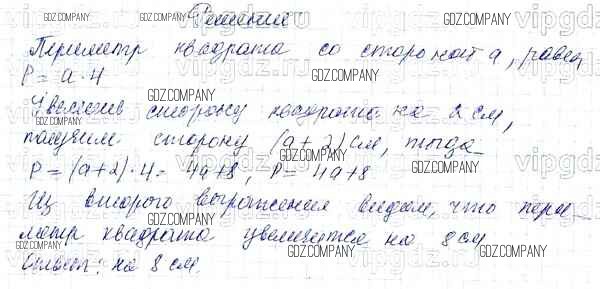 Решение
Периметр квадрата со стороной a, равен
P = a · 4
Увеличив сторону квадрата на 2 см,
получим сторону (a + 2) см, тогда
P = (a+2) · 4 = 4a+8, P = 4a+8
Из второго выражения видим, что пери-
метр квадрата увеличится на 8 см
Ответ: на 8 см.
GDZ.COMPANY
vipgdz.ru